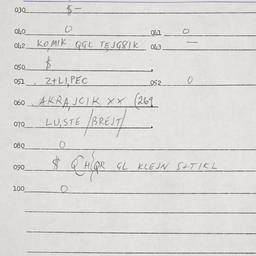 030 $ -
040 0 041 0
042 KOMIK QGL TEJG8IK 043 —
050 $
051 Z+LI,PEC 052 0
060 AKRAJCIK XX (269
070 LU,STE /BREJT/
080 0
090 $ GL KLEJN S+TIKL
100 0